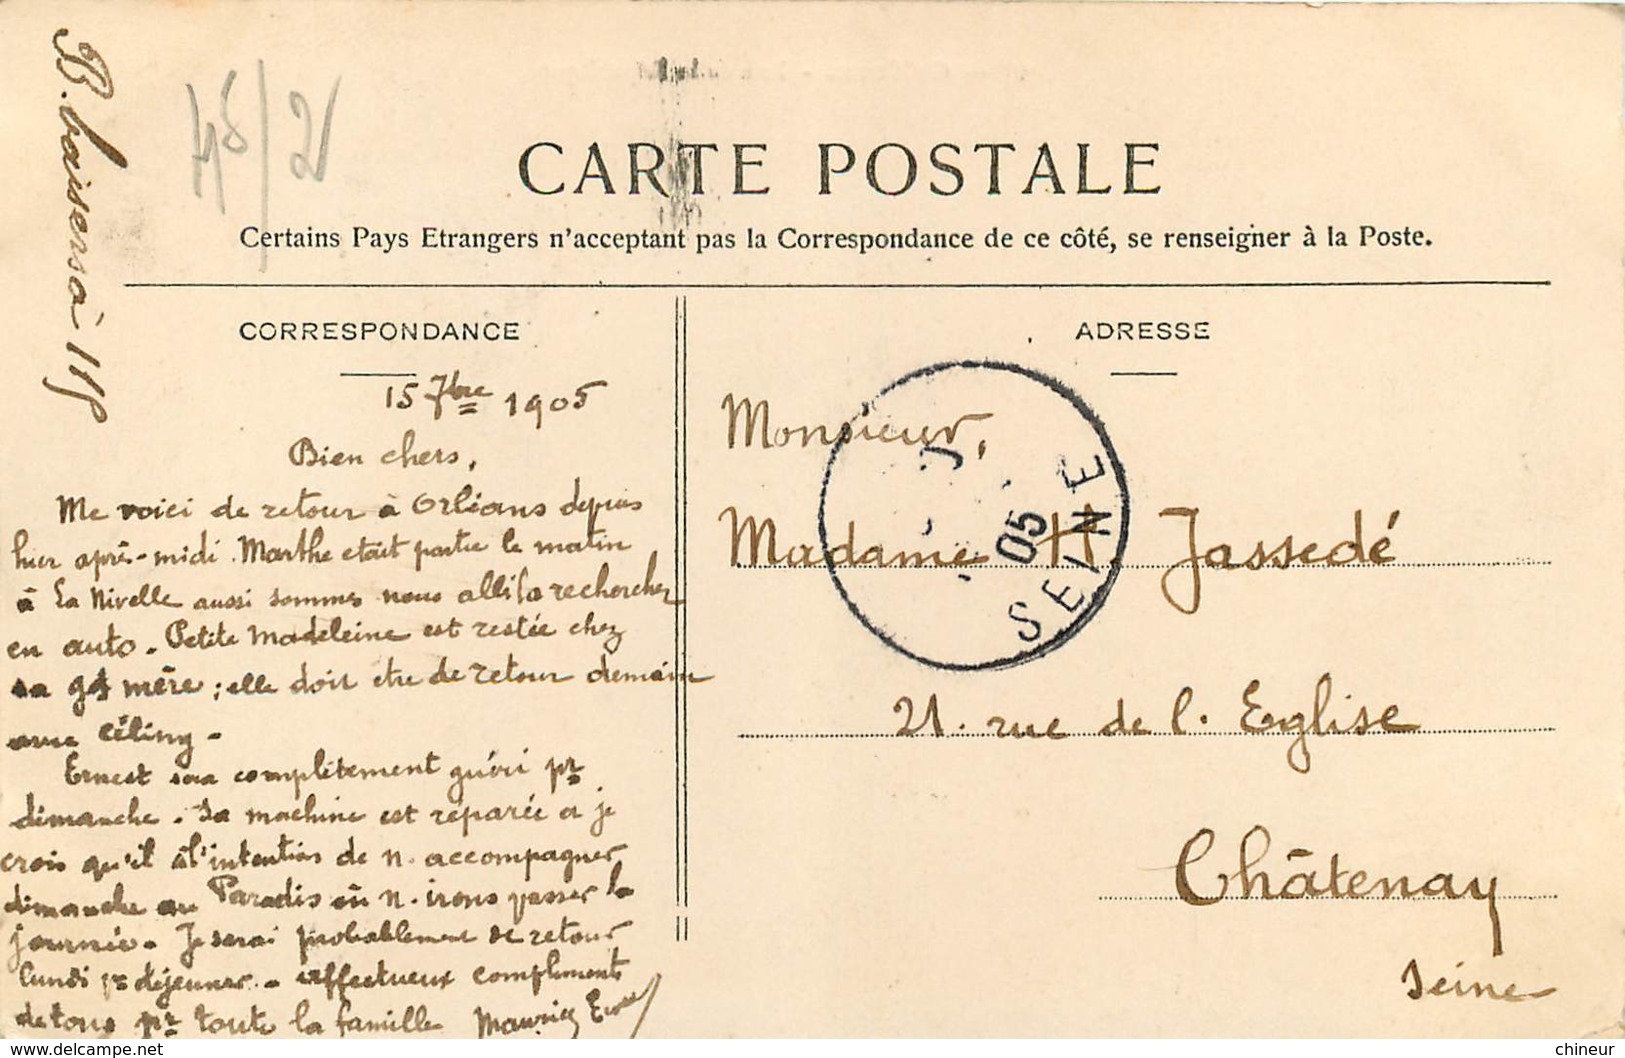 B. baisers à 
45/2
CARTE POSTALE
Certains Pays Etrangers n'acceptant pas la Correspondance de ce côté, se renseigner à la Poste.
CORRESPONDANCE
15 7bre 1905
Bien chers,
Me voici de retour à Orléans depuis
hier après-midi. Marthe etait partie le matin
à La Nivelle aussi sommes nous allés la rechercher
en auto. Petite Madeleine est restée chez
sa gd mère ; elle doit être de retour demain
avec
Ernest sera complètement guéri pr
dimanche. Sa machine est réparée et je
crois qu'il a l'intention de n. accompagner
dimanche au Paradis où n. irons passer la
journée. Je serai probablement de retour
lundi pr déjeuner. affectueux compliments
de tous pr toute la famille Maurice
ADRESSE
Monsieur,
Madame H Jassedé
21. rue de l. Eglise
Châtenay
Seine
05
SEINE
delcampe.net
chineur